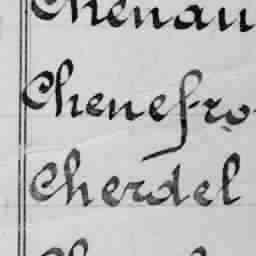 Chenau
Chenefro
Cherdel